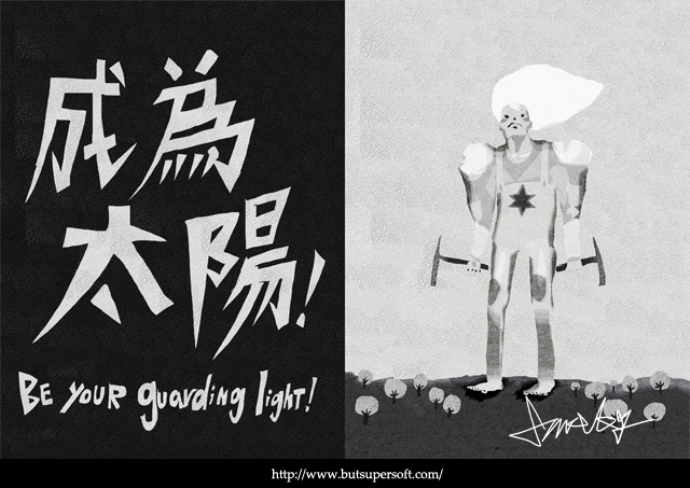 成為
太陽!
BE YOUR guarding light!
http://www.butsupersoft.com/